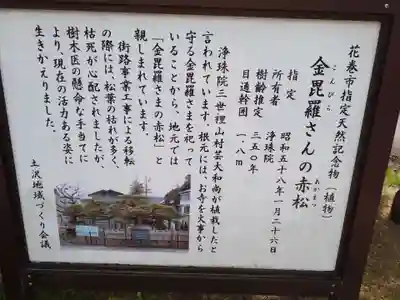 花巻市指定天然記念物(植物)
金毘羅さんの赤松
こんぴら
あかまつ
指定 昭和五十八年一月二十六日
所有者 浄珠院
樹齢推定 三五〇年
目通幹囲 一.八m
浄珠院三世禅山村芸大和尚が植栽したと
言われています。根元には、お寺を火事から
守る金毘羅さまを祀って
いることから、地元では
「金毘羅さまの赤松」と
親しまれています。
街路事業工事による移転
の際には、松葉の枯れが多く、
枯死が心配されましたが、
樹木医の懸命な手当てに
より、現在の活力ある姿に
生きかえりました。
土沢地域づくり会議